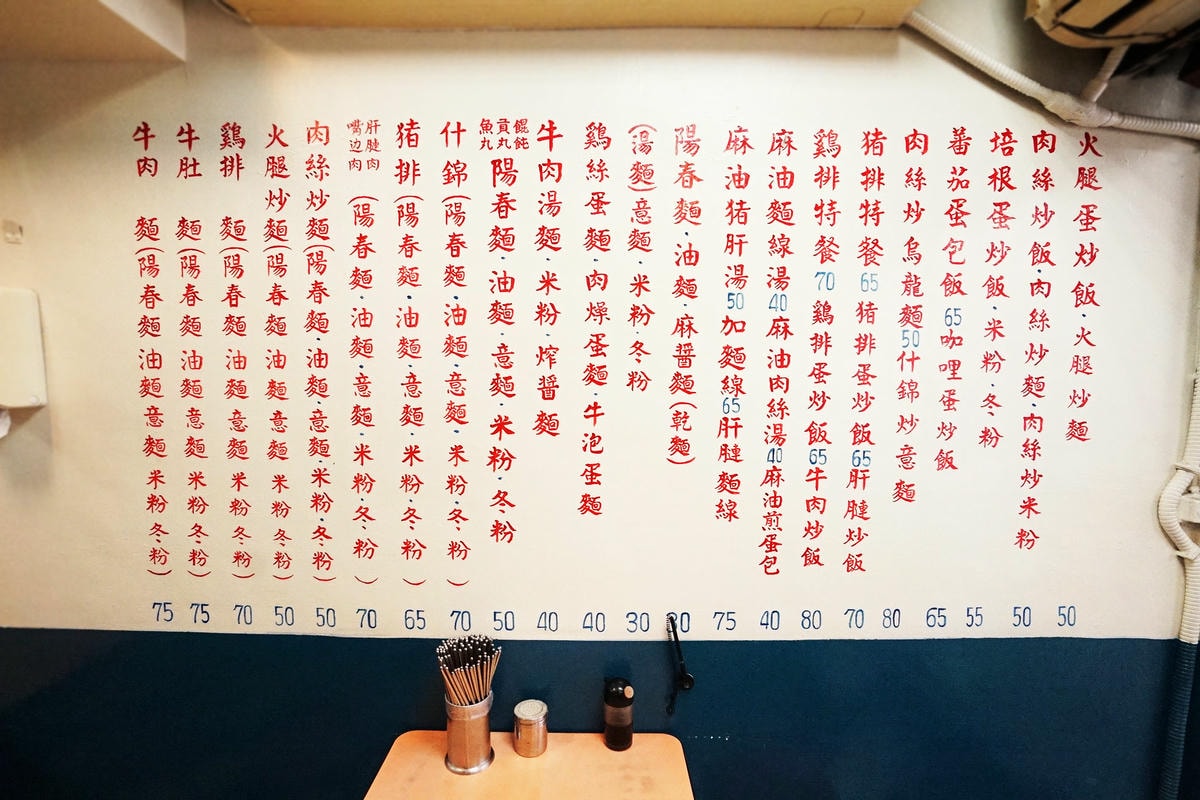 火腿蛋炒飯·火腿炒麵 50
肉絲炒飯·肉絲炒麵·肉絲炒米粉 50
培根蛋炒飯·米粉·冬粉 55
蕃茄蛋包飯65咖哩蛋炒飯 65
肉絲炒烏龍麵50什錦炒意麵 80
猪排特餐65猪排蛋炒飯65肝腱炒飯 70
鷄排特餐70鷄排蛋炒飯65牛肉炒飯 80
麻油麵線湯40麻油肉絲湯40麻油煎蛋包 40
麻油猪肝湯50加麵線65肝腱麵線 75
陽春麵·油麵·麻醬麵(乾麵) 30
(湯麵)意麵·米粉·冬粉 30
鷄絲蛋麵·肉燥蛋麵·牛泡蛋麵 40
牛肉湯麵·米粉·炸醬麵 40
餛飩 貢丸 魚丸 陽春麵·油麵·意麵·米粉·冬粉 50
什錦(陽春麵·油麵·意麵·米粉·冬粉) 70
猪排(陽春麵·油麵·意麵·米粉·冬粉) 65
肝腱肉 嘴边肉 (陽春麵·油麵·意麵·米粉·冬粉) 70
肉絲炒麵(陽春麵·油麵·意麵·米粉·冬粉) 50
火腿炒麵(陽春麵 油麵 意麵 米粉 冬粉) 50
鷄排 麵(陽春麵 油麵 意麵 米粉 冬粉) 70
牛肚 麵(陽春麵 油麵 意麵 米粉 冬粉) 75
牛肉 麵(陽春麵 油麵 意麵 米粉 冬粉) 75